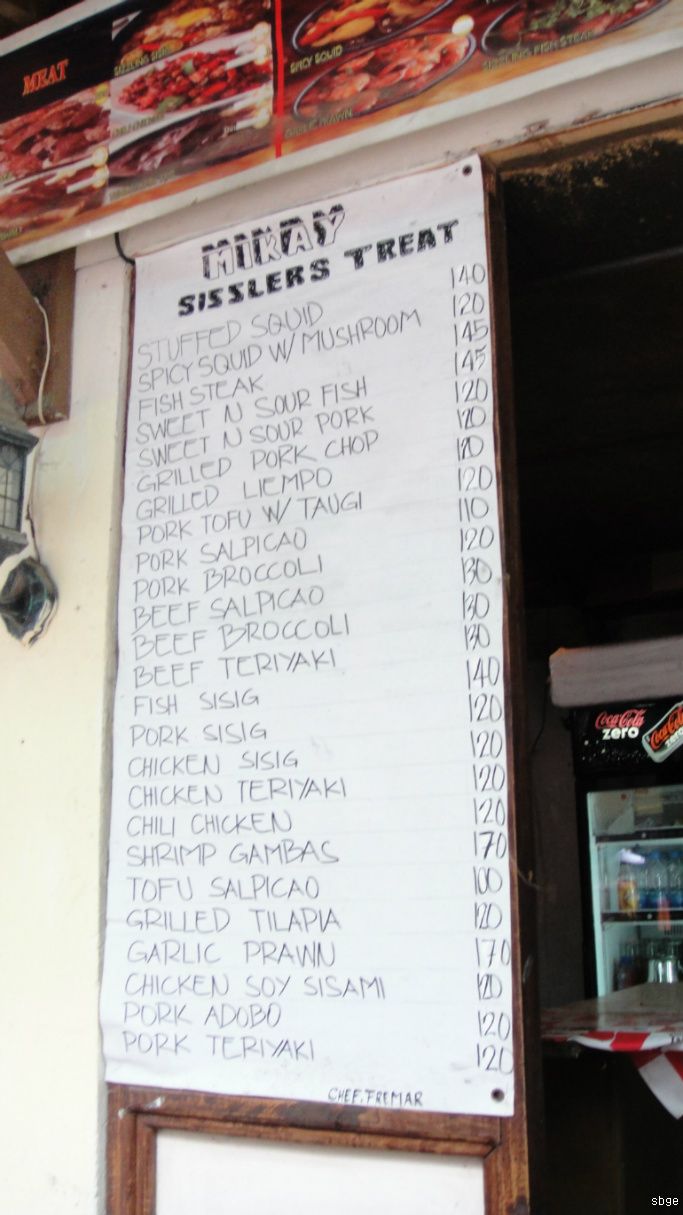 MEAT
SPICY SQUID
SIZZLING FISH STEAK
GARLIC PRAWN
MIKAY
SISSLERS TREAT
STUFFED SQUID 140
SPICY SQUID W/ MUSHROOM 120
FISH STEAK 145
SWEET N SOUR FISH 145
SWEET N SOUR PORK 120
GRILLED PORK CHOP 120
GRILLED LIEMPO 120
PORK TOFU W/ TAUGI 120
PORK SALPICAO 110
PORK BROCCOLI 120
BEEF SALPICAO 130
BEEF BROCCOLI 130
BEEF TERIYAKI 130
FISH SISIG 140
PORK SISIG 120
CHICKEN SISIG 120
CHICKEN TERIYAKI 120
CHILI CHICKEN 120
SHRIMP GAMBAS 170
TOFU SALPICAO 100
GRILLED TILAPIA 120
GARLIC PRAWN 170
CHICKEN SOY SISAMI 120
PORK ADOBO 120
PORK TERIYAKI 120
CHEF. FREMAR
Coca-Cola
zero
Coca-Cola
zero
sbge